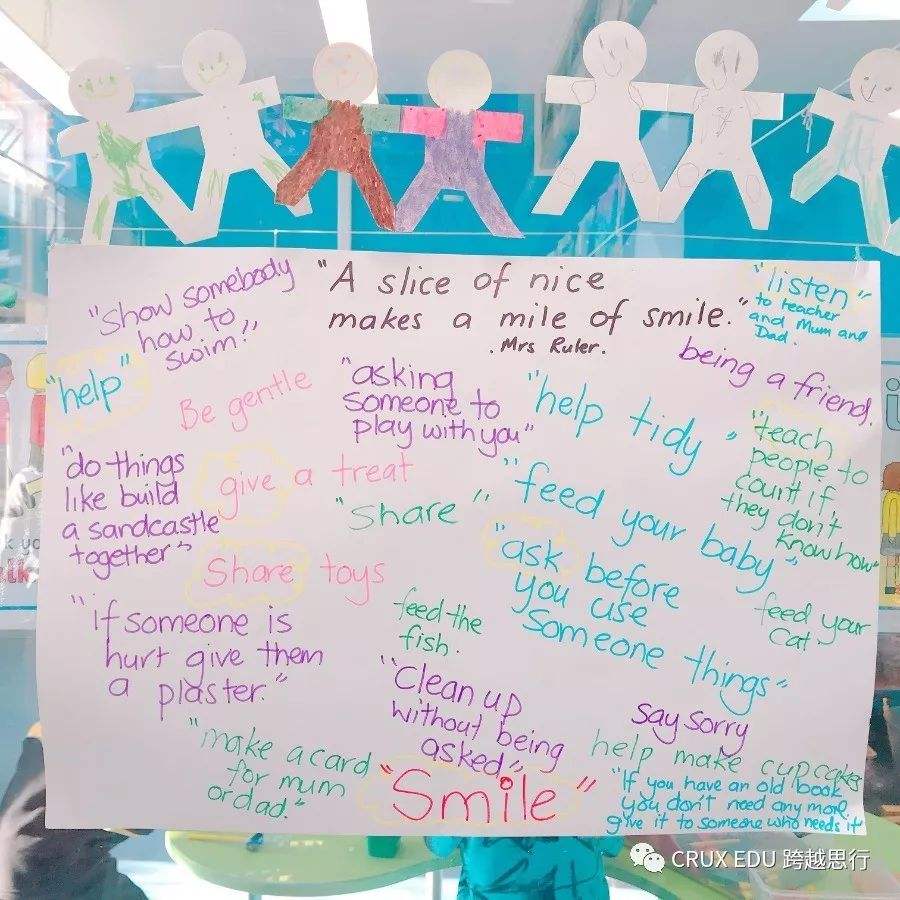 "A slice of nice
makes a mile of smile."
. Mrs Ruler.
"Show somebody
how to
swim!"
"listen"
to teacher
and Mum and
Dad.
"help"
Be gentle
"asking
someone to
play with you"
"help tidy"
being a friend.
"teach
people to
count if
they don't
know how"
"do things
like build
a sandcastle
together"
give a treat
"share"
"feed your baby"
Share toys
"ask before
you use
someone things"
"if someone is
hurt give them
a plaster."
feed the
fish.
feed your
cat.
"Clean up
without being
asked"
say sorry
"make a card
for mum
or dad."
"Smile"
help make cupcakes
"If you have an old book
you don't need any more
give it to someone who needs it"
CRUX EDU 跨越思行